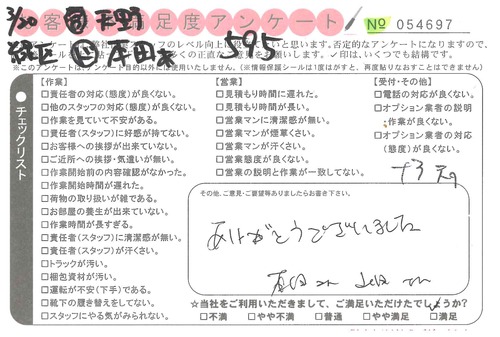 お客様満足度アンケート
3/20
平野
No 054697
595
レベル向上に
と思います。否定的なアンケートになりますので、
正直な
お願いします。✓印は、いくつでも結構です。
※このアンケートは、アンケート目的以外には使用いたしません。(※情報保護シールは1度はがすと、再度貼りなおすことはできません)
チェックリスト
【作業】
□責任者の対応(態度)が良くない。
□他のスタッフの対応(態度)が良くない。
□作業を見ていて不安がある。
□責任者(スタッフ)に好感が持てない。
□お客様への挨拶が出来ていない。
□ご近所への挨拶・気遣いが無い。
□作業開始前の内容確認がなかった。
□作業開始時間が遅れた。
□荷物の取り扱いが雑である。
□お部屋の養生が出来ていない。
□作業時間が長すぎる。
□責任者(スタッフ)に清潔感が無い。
□責任者(スタッフ)が汗くさい。
□トラックが汚い。
□梱包資材が汚い。
□運転が不安(下手)である。
□靴下の履き替えをしてない。
□スタッフにやる気がみられない。
【営業】
□見積もり時間に遅れた。
□見積もり時間が長い。
□営業マンに清潔感が無い。
□営業マンが煙草くさい。
□営業マンが汗くさい。
□営業態度が良くない。
□営業の説明と作業が一致してない。
【受付・その他】
□電話の対応が良くない。
□オプション業者の説明
作業が良くない。
□オプション業者の対応
(態度)が良くない。
その他、ご意見・ご要望等ありましたらお書き下さい。
ありがとうございました
☆当社をご利用いただきまして、ご満足いただけたでしょうか?
□不満 □やや不満 □普通 □やや満足 □満足
ご協力ありがとうございました。